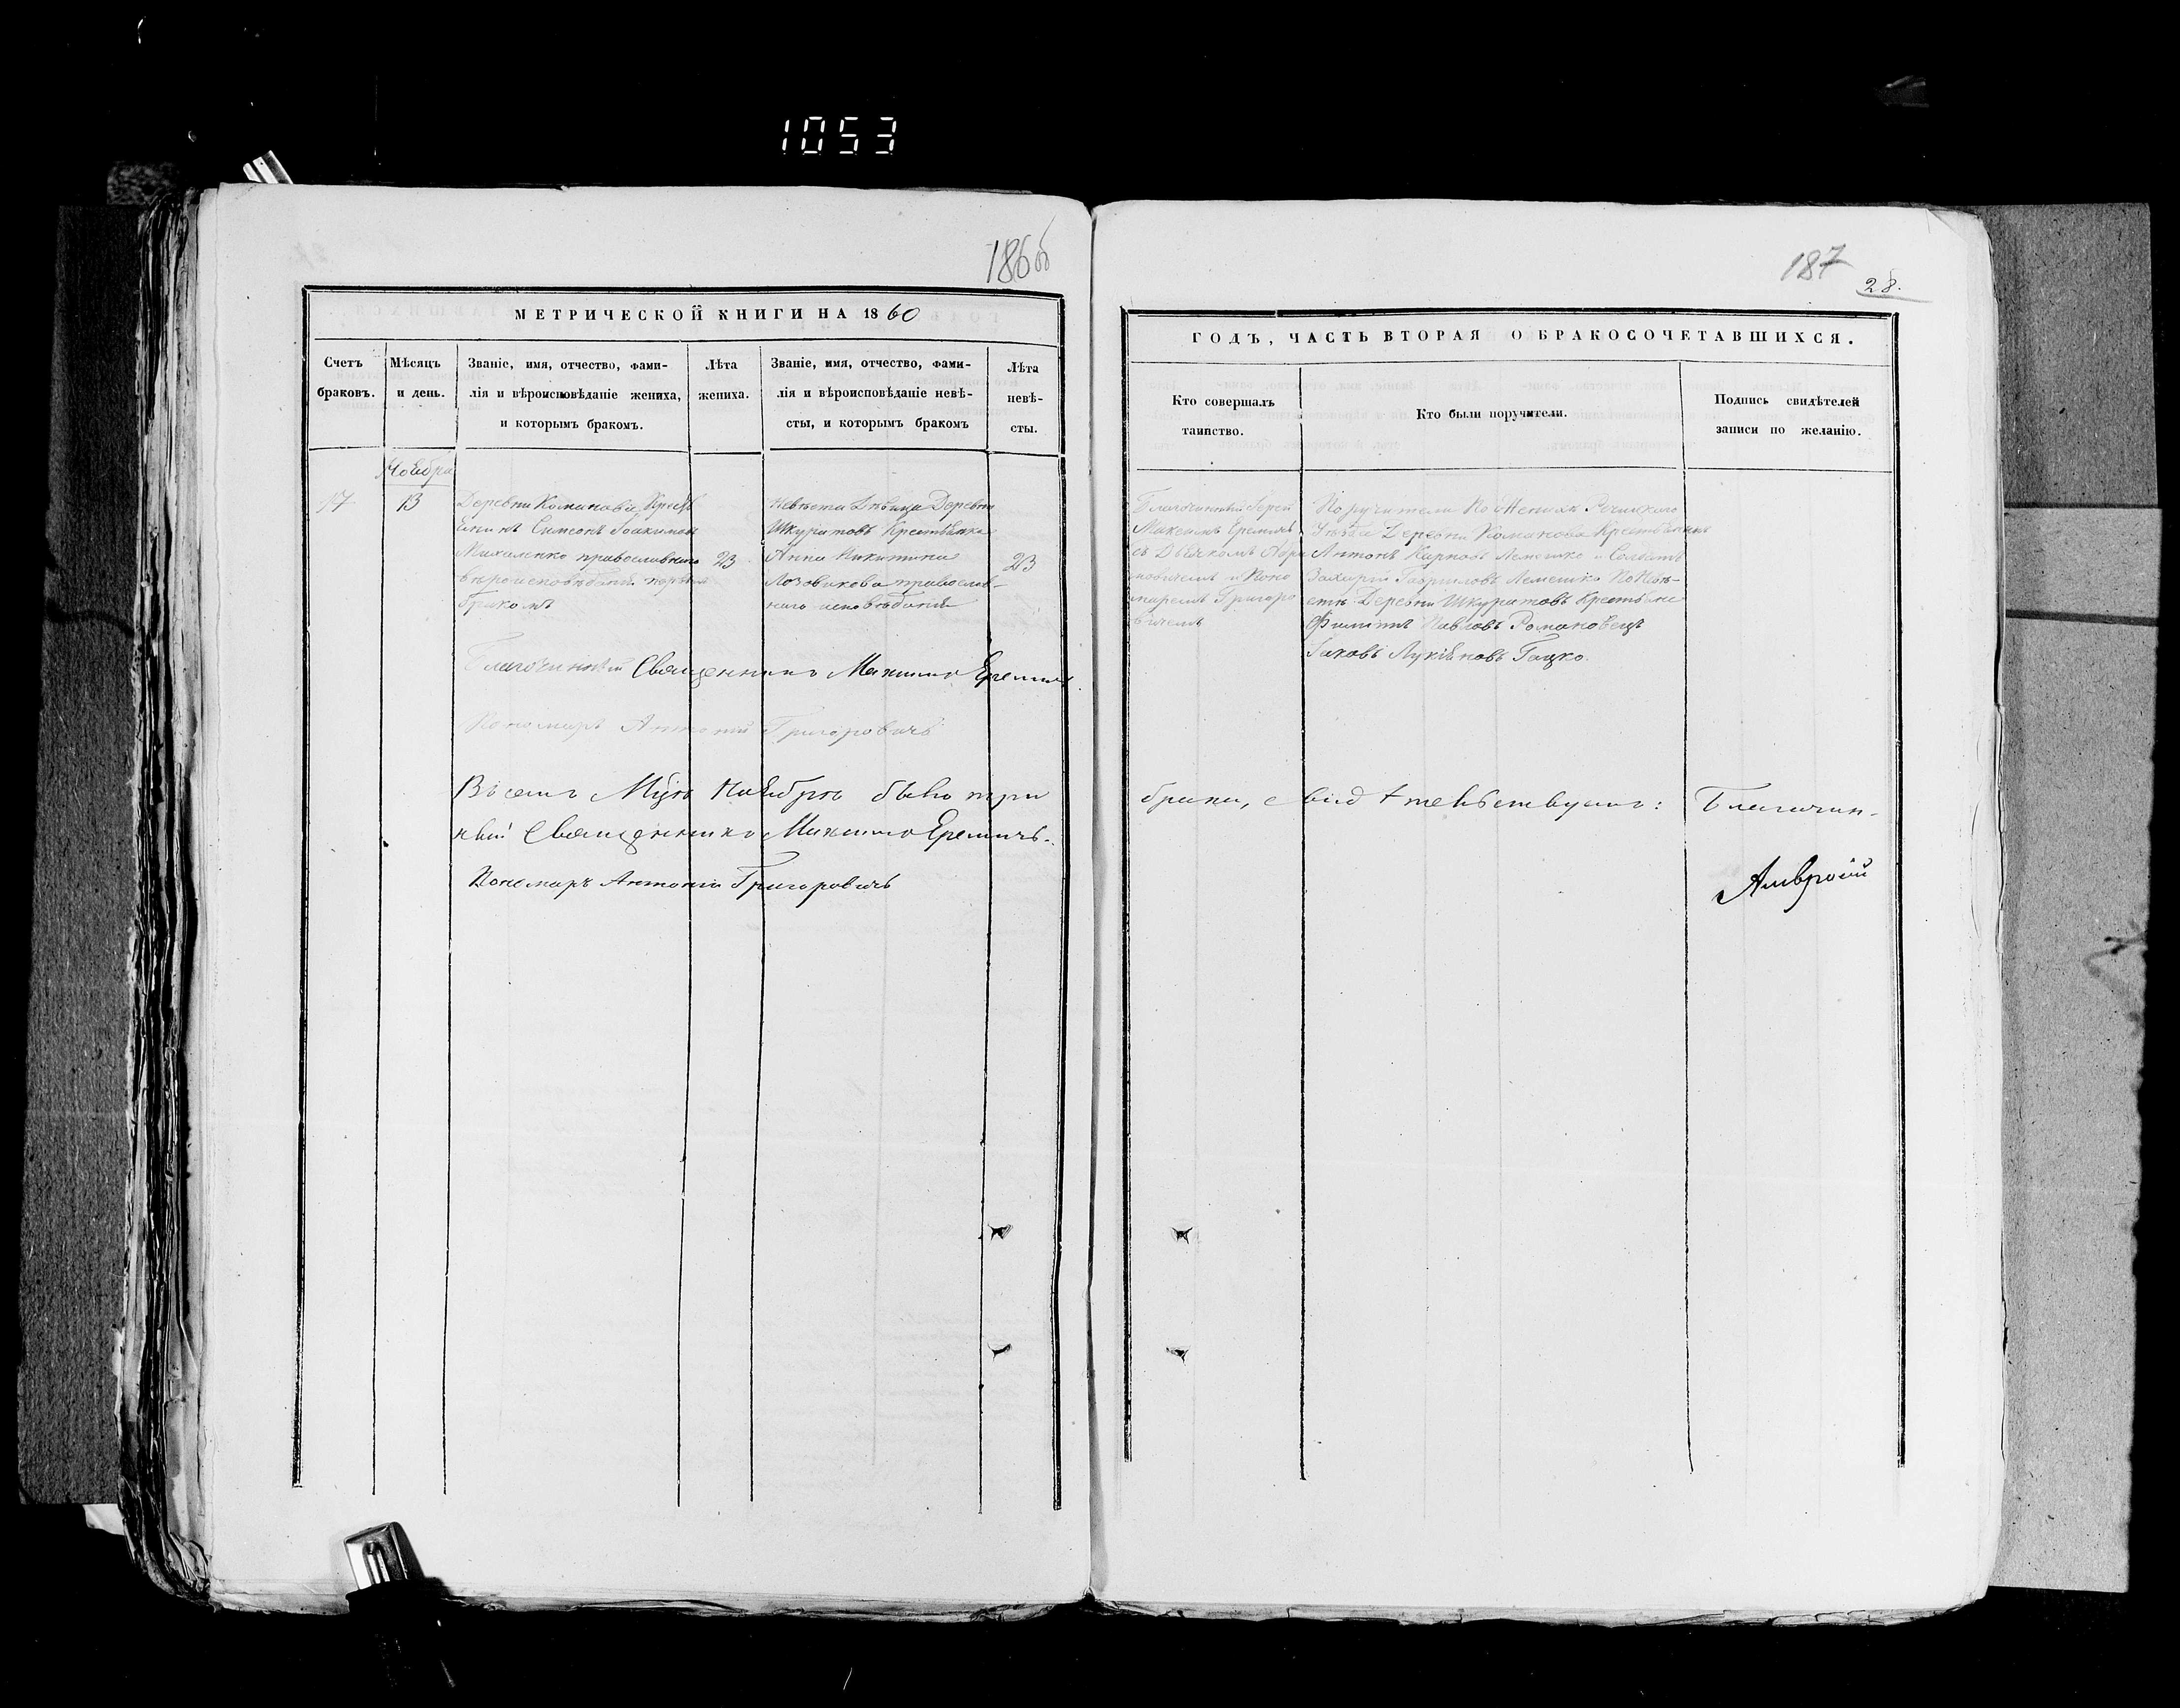 1053
186об
МЕТРИЧЕСКОЙ КНИГИ НА 1860
Счетъ
браковъ.
Мѣсяцъ
и день.
Званіе, имя, отчество, фами-
лія и вѣроисповѣданіе жениха,
и которымъ бракомъ.
Лѣта
жениха.
Званіе, имя, отчество, фами-
лія и вѣроисповѣданіе невѣ-
сты, и которымъ бракомъ
Лѣта
невѣ-
сты.
Ноября
17
13
Деревни Команова Кресть
янинъ Симеонъ Іоакимовъ
Михаленко православнаго
вѣроисповѣданія первымъ
бракомъ
23
Невѣста Дѣвица Деревни
Шкуратовъ Крестьянка
Анна Никитина
Лозовикова православ-
наго исповѣданія
23
Благочинный Священникъ Максимъ Еремичъ
Пономарь Антоній Григоровичъ
Въ семъ Мцѣ Ноябрѣ было три
ный Священникъ Максимъ Еремичъ.
Пономарь Антоній Григоровичъ
187
28.
ГОДЪ, ЧАСТЬ ВТОРАЯ О БРАКОСОЧЕТАВШИХСЯ.
Кто совершалъ
таинство.
Кто были поручители.
Подпись свидѣтелей
записи по желанію.
Благочинный Іерей
Максимъ Еремичъ
съ Дьячкомъ
и Поно
маремъ Григоро
вичемъ
Поручители По Женихѣ Речицкаго
Уѣзда Деревни Команова Крестьянинъ
Антонъ Карповъ Лемешко и Солдатъ
Захарій Гавриловъ Лемешко По Невѣ-
стѣ Деревни Шкуратовъ Крестьяне
Филиппъ Павловъ Романовецъ
Іаковъ Лукьяновъ Гацко.
брака, свидѣтельствуютъ: Благочин-
Амвросій